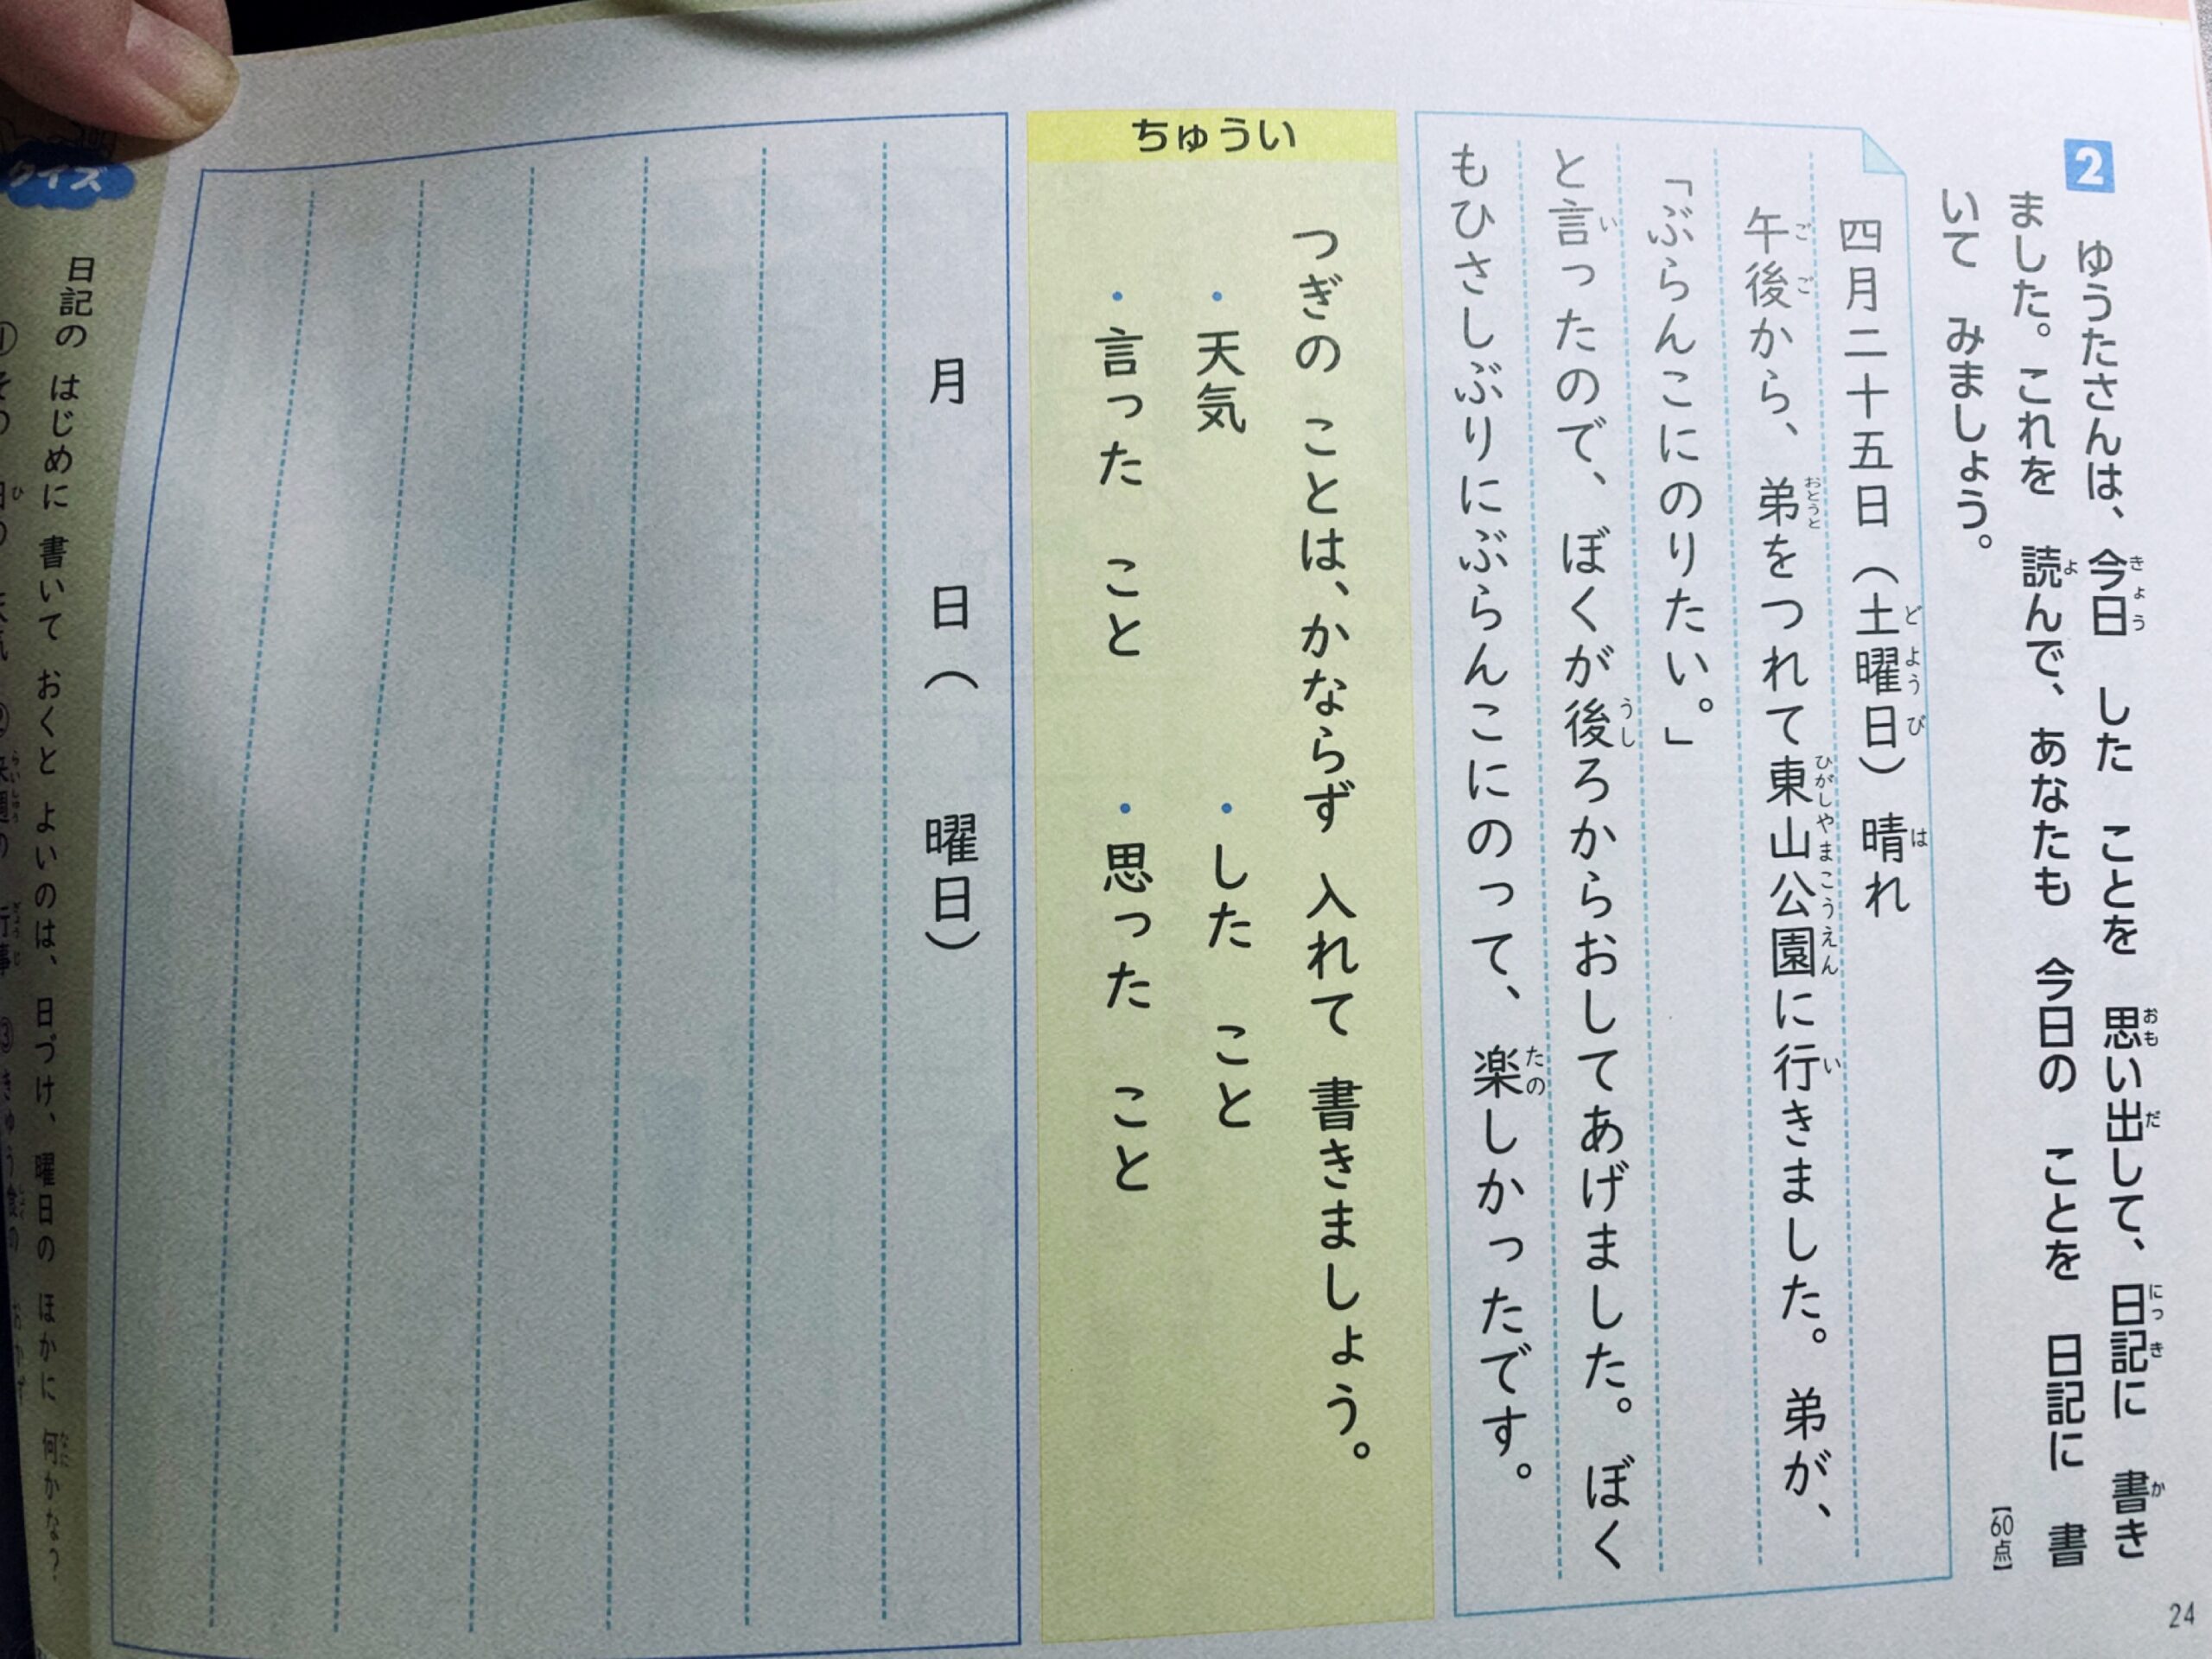 2
ゆうたさんは、今日 した ことを 思い出して、日記に 書き
ました。これを 読んで、あなたも 今日の ことを 日記に 書
いて みましょう。
【60点】
四月二十五日（土曜日）晴れ
午後から、弟をつれて東山公園に行きました。弟が、
「ぶらんこにのりたい。」
と言ったので、ぼくが後ろからおしてあげました。ぼく
もひさしぶりにぶらんこにのって、楽しかったです。
ちゅうい
つぎの ことは、かならず 入れて 書きましょう。
・天気 ・した こと
・言った こと ・思った こと
月 日（ 曜日）
クイズ
日記の はじめに 書いて おくと よいのは、日づけ、曜日の ほかに 何かな？
24